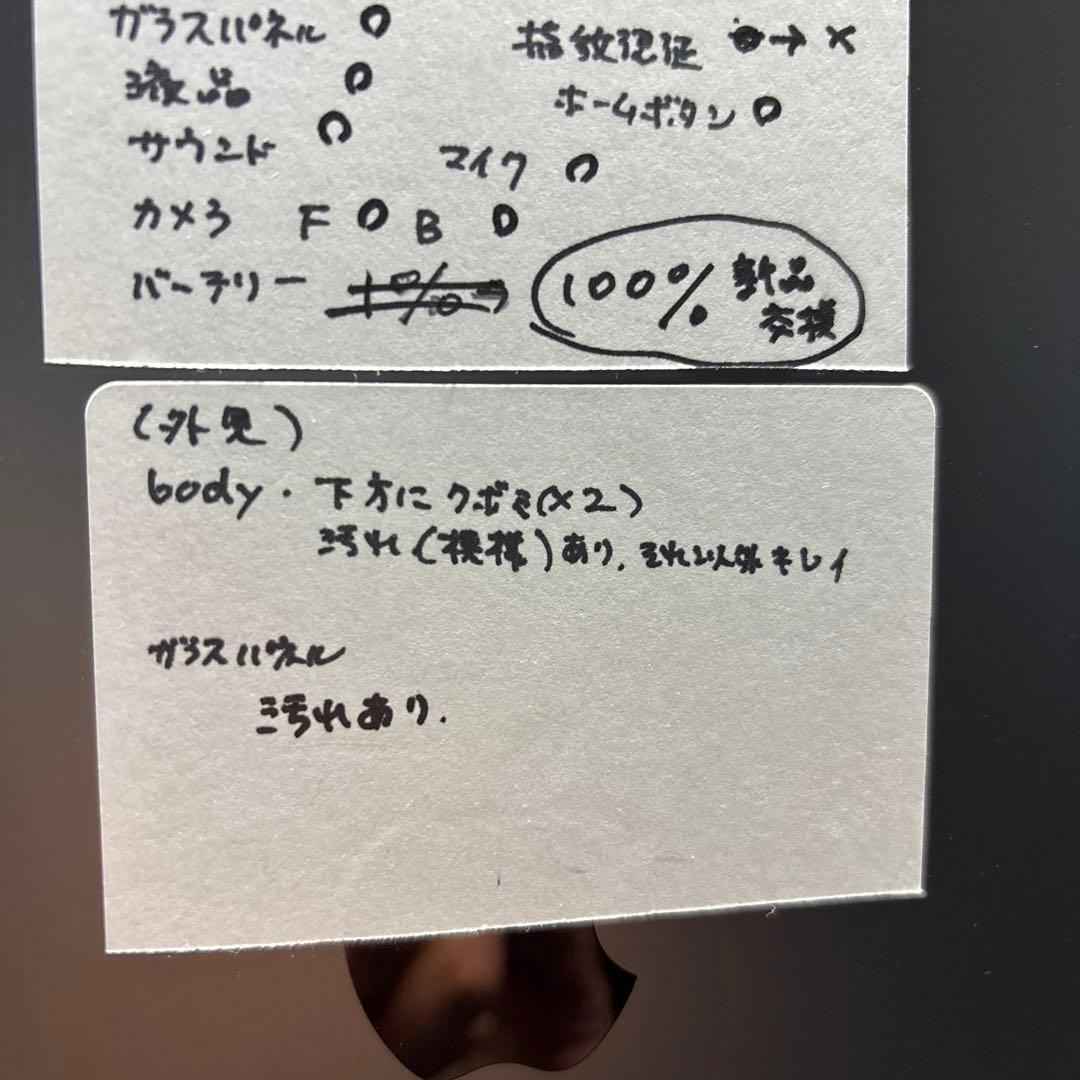 ガラスパネル ○
指紋認証 ○→×
液晶 ○
ホームボタン ○
サウンド ○
マイク ○
カメラ F ○ B ○
バーテリー 100% 新品
交換
(外見)
body・下方にクボミ(×2)
汚れ(模様)あり、それ以外キレイ
ガラスパネル
汚れあり.